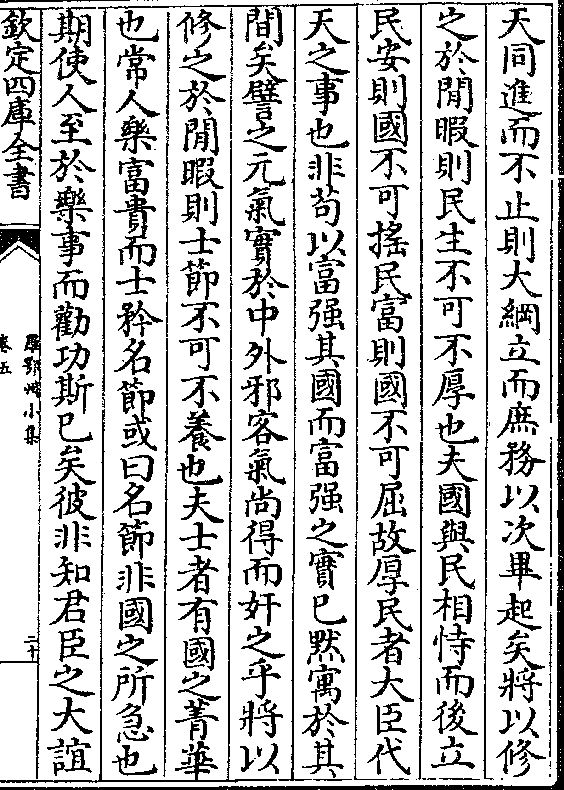 天同進而不止則大綱立而庶務以次畢起矣將以修
之於閒暇則民生不可不厚也夫國與民相恃而後立
民安則國不可搖民富則國不可屈故厚民者大臣代
天之事也非苟以富强其國而富强之實已黙寓於其
間矣譬之元氣實於中外邪客氣尚得而奸之乎將以
修之於閒暇則士節不可不養也夫士者有國之菁華
也常人樂富貴而士矜名節或曰名節非國之所急也
期使人至於樂事而勸功斯已矣彼非知君臣之大誼
欽定四庫全書
小集
卷五
二十